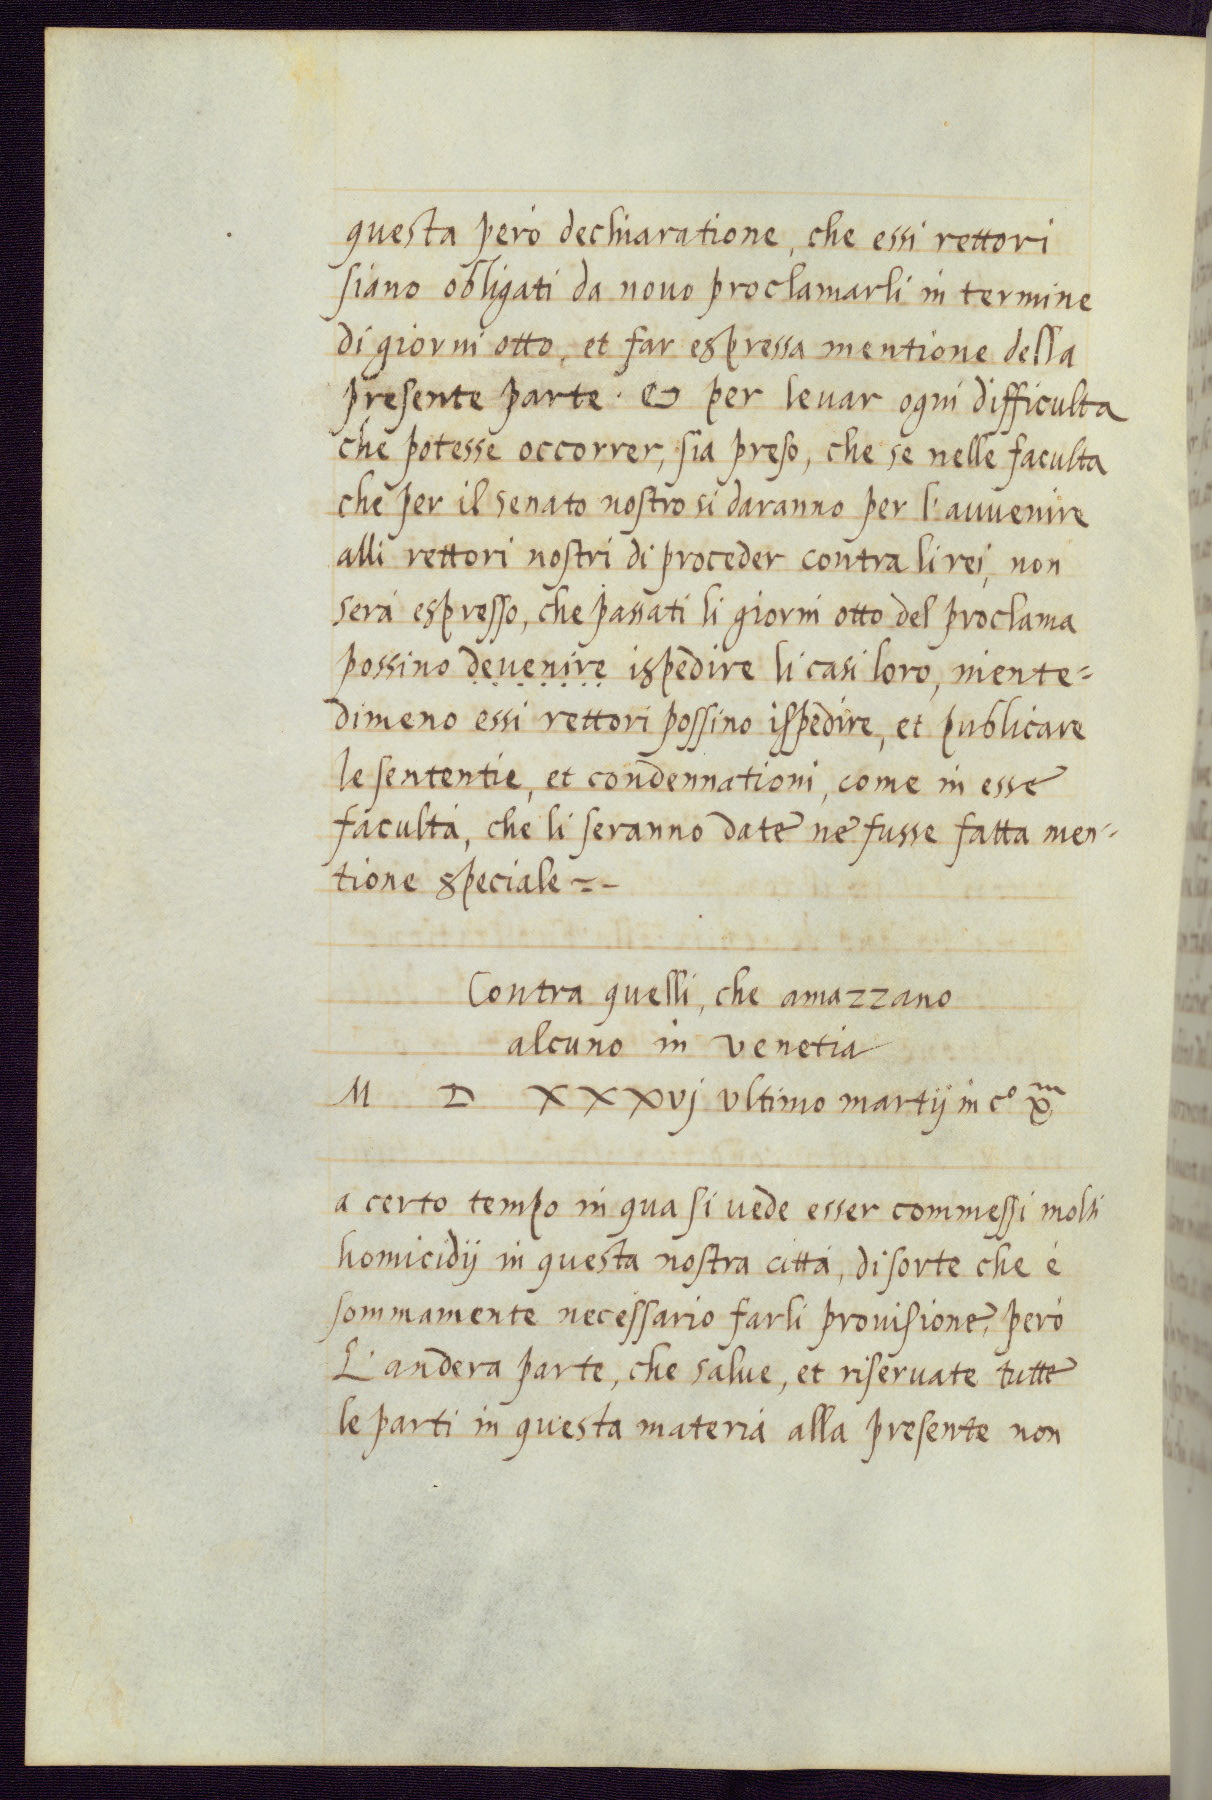 questa però dechiaratione, che essi rettori
siano obligati da novo proclamarli in termine
di giorni otto, et far espressa mentione della
presente parte. Et per levar ogni difficulta
che potesse occorrer, sia preso, che se nelle faculta
che per il senato nostro si daranno per l'auuenire
alli rettori nostri di proceder contra li rei, non
serà espresso, che passati li giorni otto del proclama
possino devenire ispedire li casi loro, niente=
dimeno essi rettori possino ispedire, et publicare
le sententie, et condennationi, come in esse
facultà, che li seranno date ne fusse fatta men-
tione speciale =-
Contra quelli, che amazzano
alcuno in venetia
M D XXXvj ultimo martij in cº xᵐ
a certo tempo in qua si uede esser commessi molti
homicidij in questa nostra città, di sorte che é
sommamente necessario farli provisione, però
L'andera parte, che salue, et riseruate tutte
le parti in questa materia alla presente non